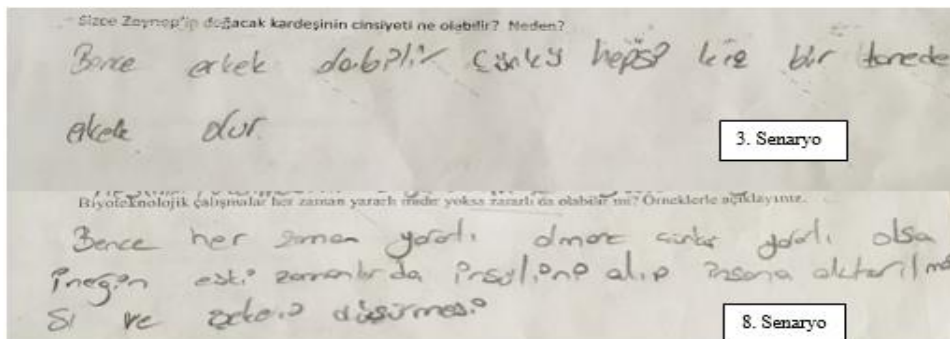 Sizce Zeynep'in doğacak kardeşinin cinsiyeti ne olabilir? Neden?
Bence erkek olabilir çünkü hepsi kız bir tanede
erkek olur.
3. Senaryo
Biyoteknolojik çalışmalar her zaman yararlı mıdır yoksa zararlı da olabilir mi? Örneklerle açıklayınız.
Bence her zaman yararlı olmaz çünkü yararlı olsa
ineğin eski zamanlarda insülini alıp insana aktarılma
sı ve düşürmesi
8. Senaryo